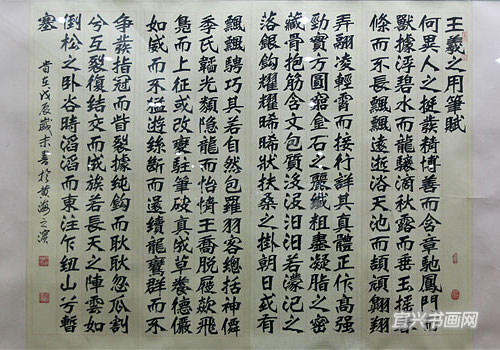 王羲之用筆賦
何異人之挺發精博善而含章馳鳳門而
獸據浮碧水而龍驤滴秋露而垂玉搖春
條而不長飄飄遠逝浴天池而頡頏翱翔
弄翮凌輕霄而接行詳其真體正作高強
勁實方圓窮金石之麗纖粗盡凝脂之密
藏骨抱筋含文包質沒沒汨汨若濛汜之
落銀鈎耀耀晞晞狀扶桑之掛朝日或有
飄飄騁巧其若自然包羅羽客總括神僊
季氏韞光類隱龍而怡情王喬脫屣欻飛
鳧而上征或改變駐筆破真成草養德儼
如威而不猛遊絲斷而還續龍鸞群而不
爭發指冠而眥裂據純鈎而耿耿忽瓜割
兮互裂復結交而成族若長天之陣雲如
倒松之卧谷時滔滔而東注乍紐山兮暫
塞
戊辰歲末書於黃海之濱
宜兴书画网